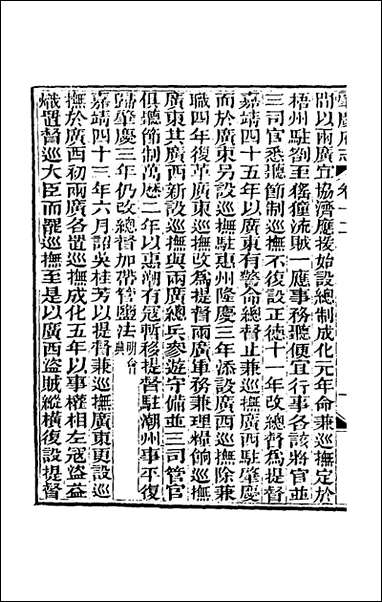 肇慶府志 卷十二
間以兩廣宜協濟應接始設總制成化元年命兼巡撫定於
梧州駐劄至猺獞流賊一應事務聽便宜行事各該將官並
三司官悉聽節制巡撫不復設正德十一年改總督為提督
嘉靖四十五年以廣東有警命總督止兼巡撫廣西駐肇慶
而於廣東另設巡撫駐惠州隆慶三年添設廣西巡撫除兼
職四年復革廣東巡撫改為提督兩廣軍務兼理糧餉巡撫
廣東其廣西新設巡撫與兩廣總兵參遊守備並三司管官
俱聽節制萬歷二年以惠潮有寇暫移提督駐潮州事平復
歸肇慶三年仍改總督加帶管鹽法明會典
嘉靖四十三年六月詔吳桂芳以提督兼巡撫廣東更設巡
撫於廣西初兩廣各置巡撫成化五年以事權相左寇盜益
熾置督巡大臣而罷巡撫至是以廣西盜賊縱橫復設提督